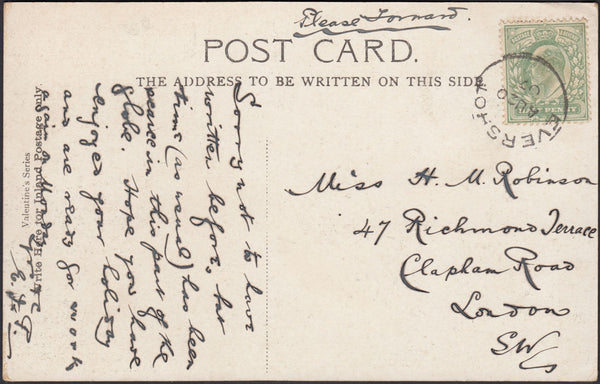 Please Forward.
POST CARD.
THE ADDRESS TO BE WRITTEN ON THIS SIDE.
EVERSHOT
AU 20
07
Miss H. M. Robinson
47 Richmond Terrace
Clapham Road
London
SW
Sorry not to have
written before, but
time (as usual) has been
scarce in this part of the
globe. Hope you have
enjoyed your holiday
and are ready for work
again on Monday
Valentine's Series
Write Here for Inland Postage Only.